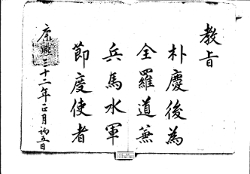 教旨
朴慶後為
全羅道兼
兵馬水軍
節度使者
康熙三十二年正月初五日